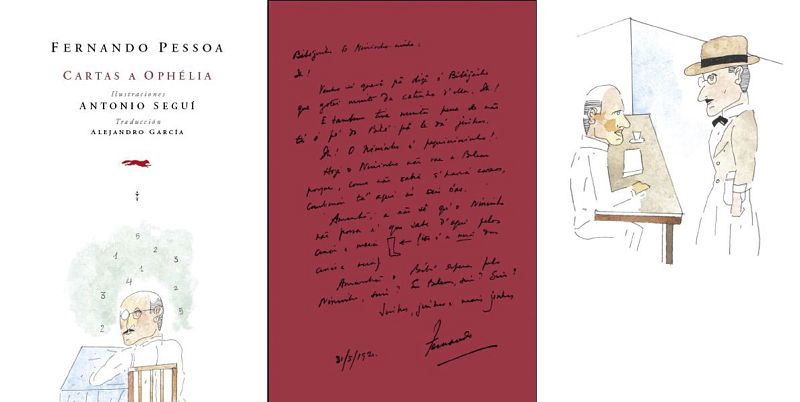 FERNANDO PESSOA
CARTAS A OPHÉLIA
Ilustraciones
ANTONIO SEGUÍ
Traducción
ALEJANDRO GARCÍA
5
2
1
5
4
3
1
2
5
Bébézinho do Nininho-ninho,
Oh!
Venho só quevê pâ dizê ó Bébézinho
que gotei muito da catinha d'ella. Oh!
E também tive munta pena de não
tá ó pé do Bébé pâ le dá jinhos.
Oh! O Nininho é pequinininho!
Hoje o Nininho não vai a Belem
porque, como não sabia s'havia carros,
combinei tá aqui ás seis óas.
Amanhã, a não sê qu'o Nininho
não possa é que sahe d'aqui pelas
cinco e meia (isto é a meia das
cinco e meia)
Amanhã o Bébé espera pelo
Nininho, sim? Em Belem, sim? Sim?
Jinhos, jinhos e mais jinhos
Fernando
31/5/1920